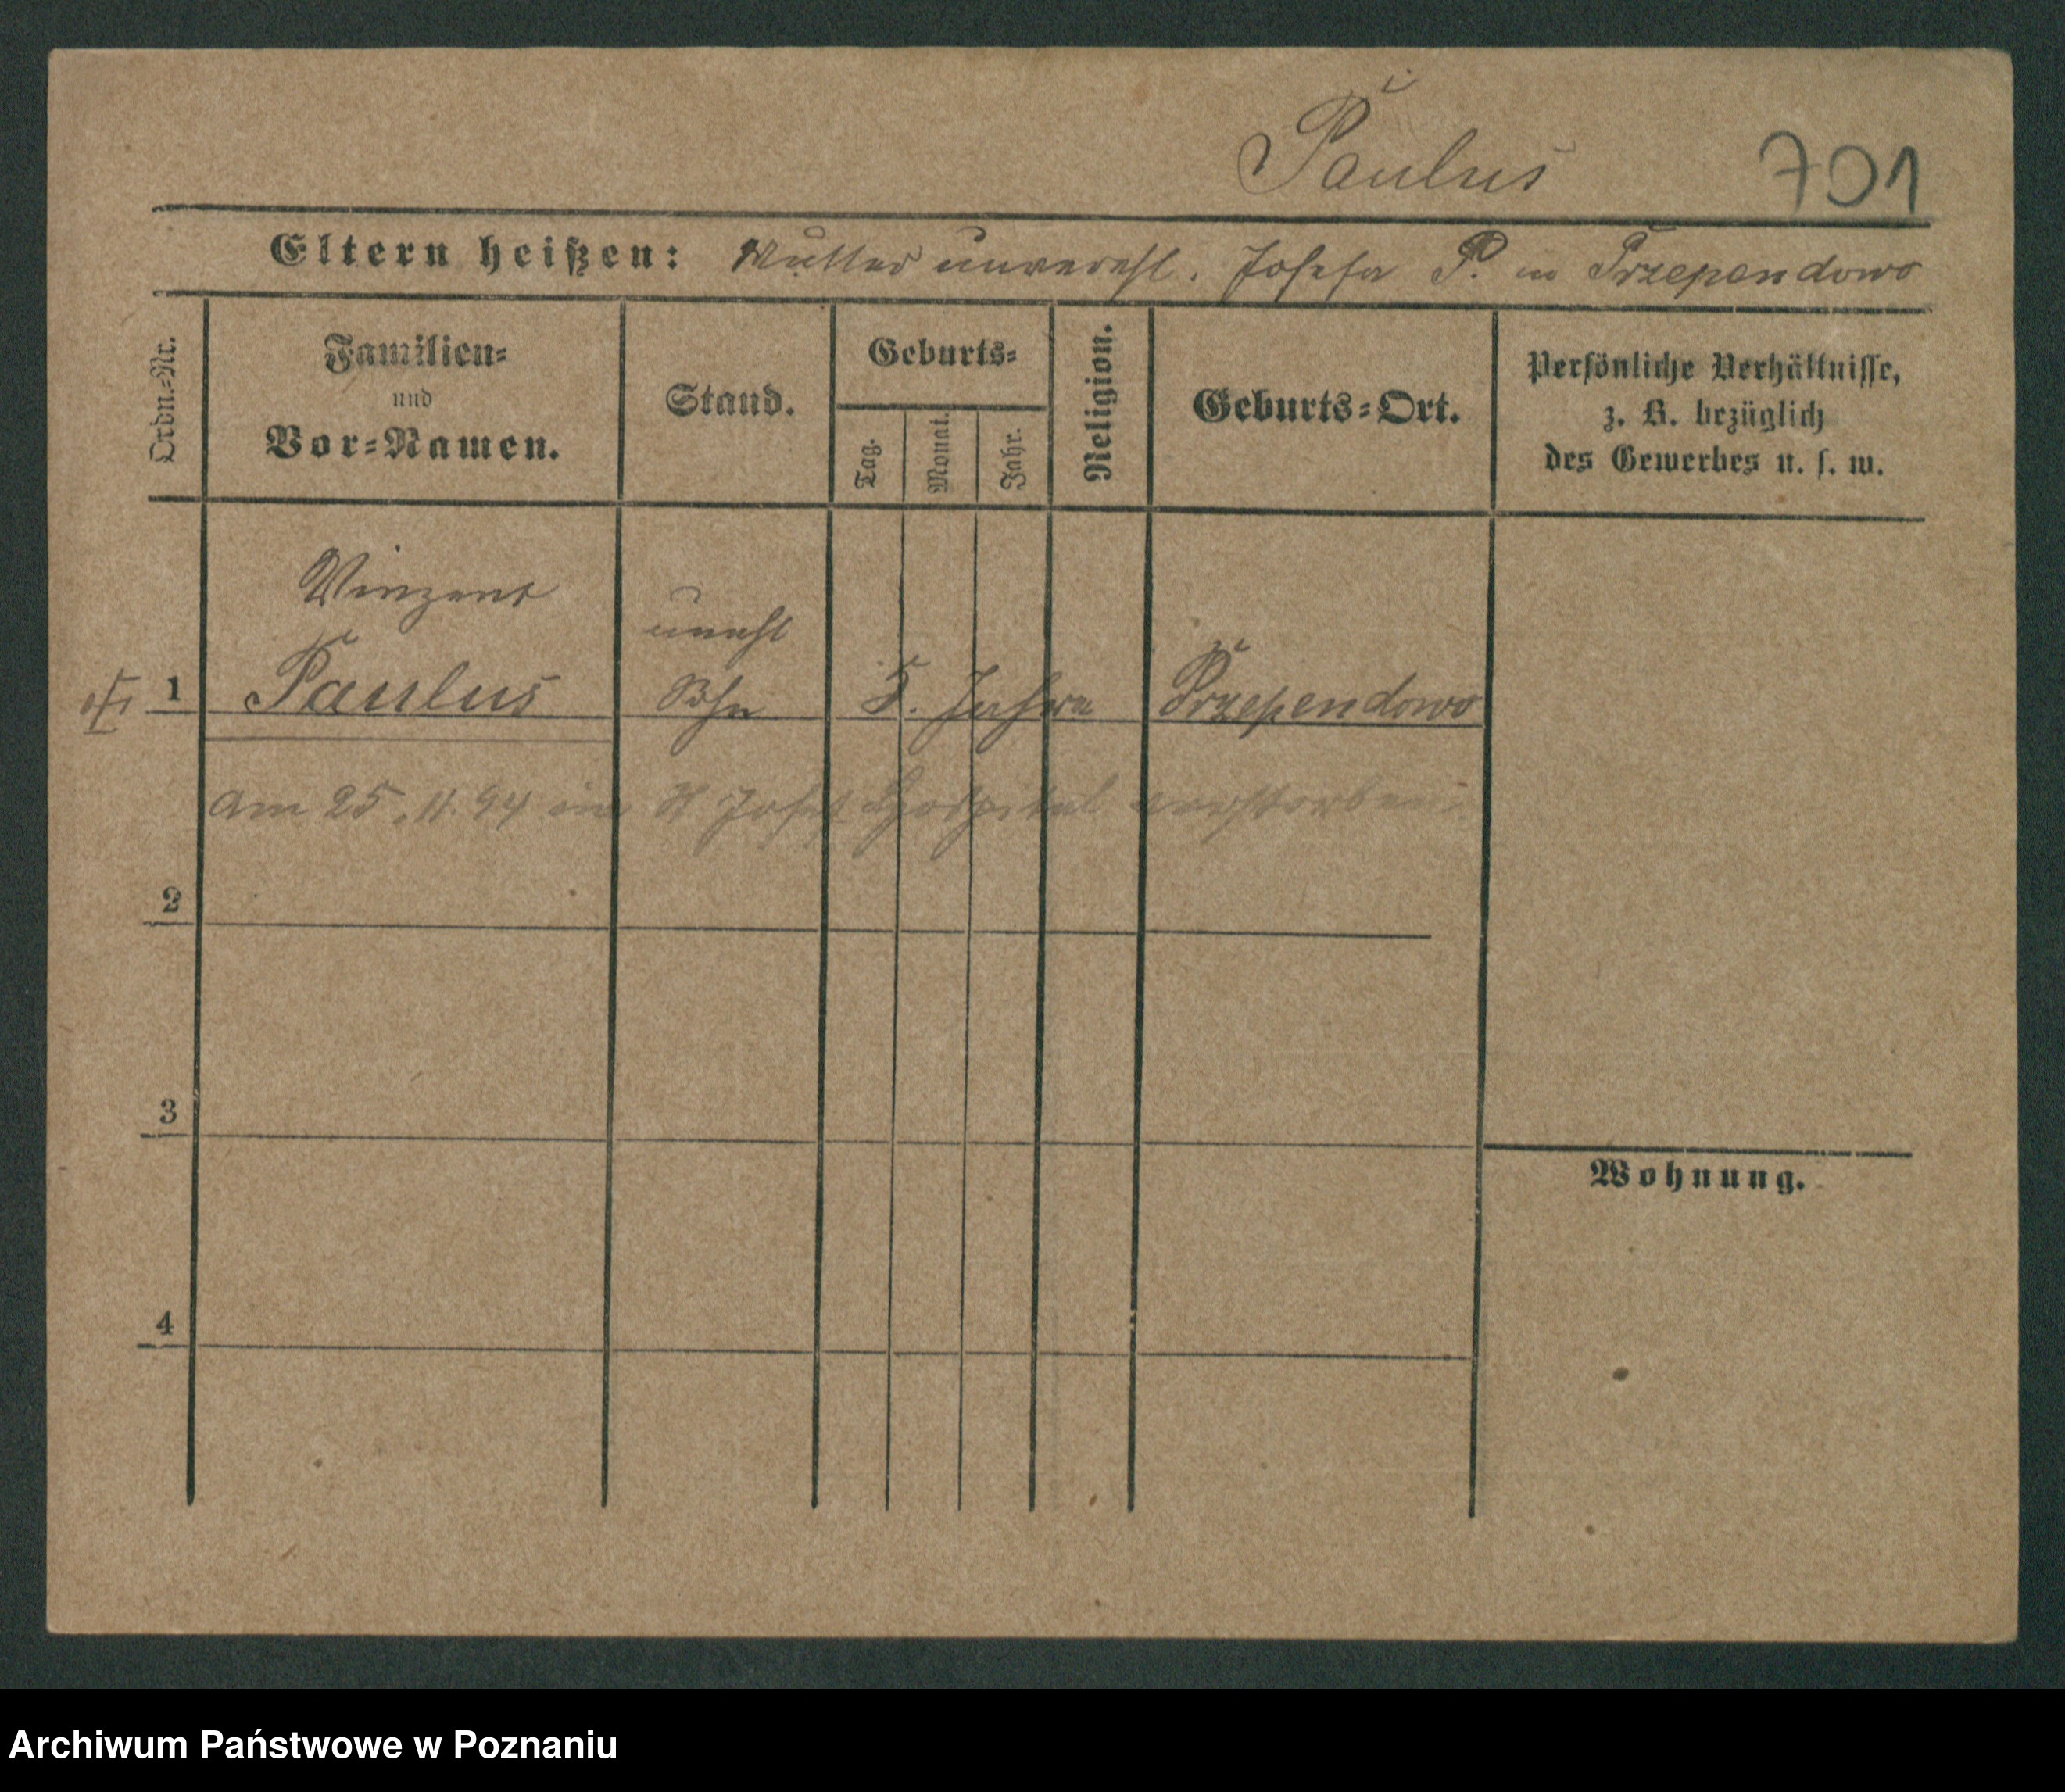 Paulus 701
Eltern heißen: Mutter unverehl. Josefa P. in Przependowo
Ordn.-Nr.
Familien-
und
Vor-Namen.
Stand.
Geburts-
Tag.
Monat.
Jahr.
Religion.
Geburts-Ort.
Persönliche Verhältnisse,
z. B. bezüglich
des Gewerbes u. s. w.
Vinzent
unehl
1 Paulus Sohn 5. Jahre Przependowo
am 25.11.94 im St Josef Hospital verstorben.
2
3
Wohnung.
4
Archiwum Państwowe w Poznaniu